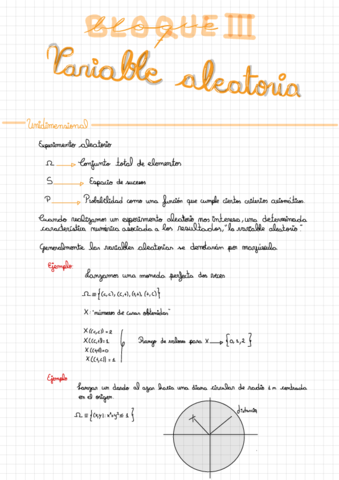 BLOQUE III
Variable aleatoria
Unidimensional
Experimento aleatorio
Ω → Conjunto total de elementos
S → Espacio de sucesos
P → Probabilidad como una función que cumple ciertos criterios axiomáticos.
Cuando realizamos un experimento aleatorio nos interesa, una determinada
característica numérica asociada a los resultados, "la variable aleatoria"
Generalmente las variables aleatorias se denotarán por mayúscula.
Ejemplo:
Lanzamos una moneda perfecta dos veces
X: "números de caras obtenidas"
X(c,c)=2
Rango de valores para X → {0,1,2}
Ejemplo:
Lanzar un dardo al azar hasta una diana circular de radio 1m centrada
en el origen.
Ω ≡ {(x,y): x²+y² ≤ 1}
distancia